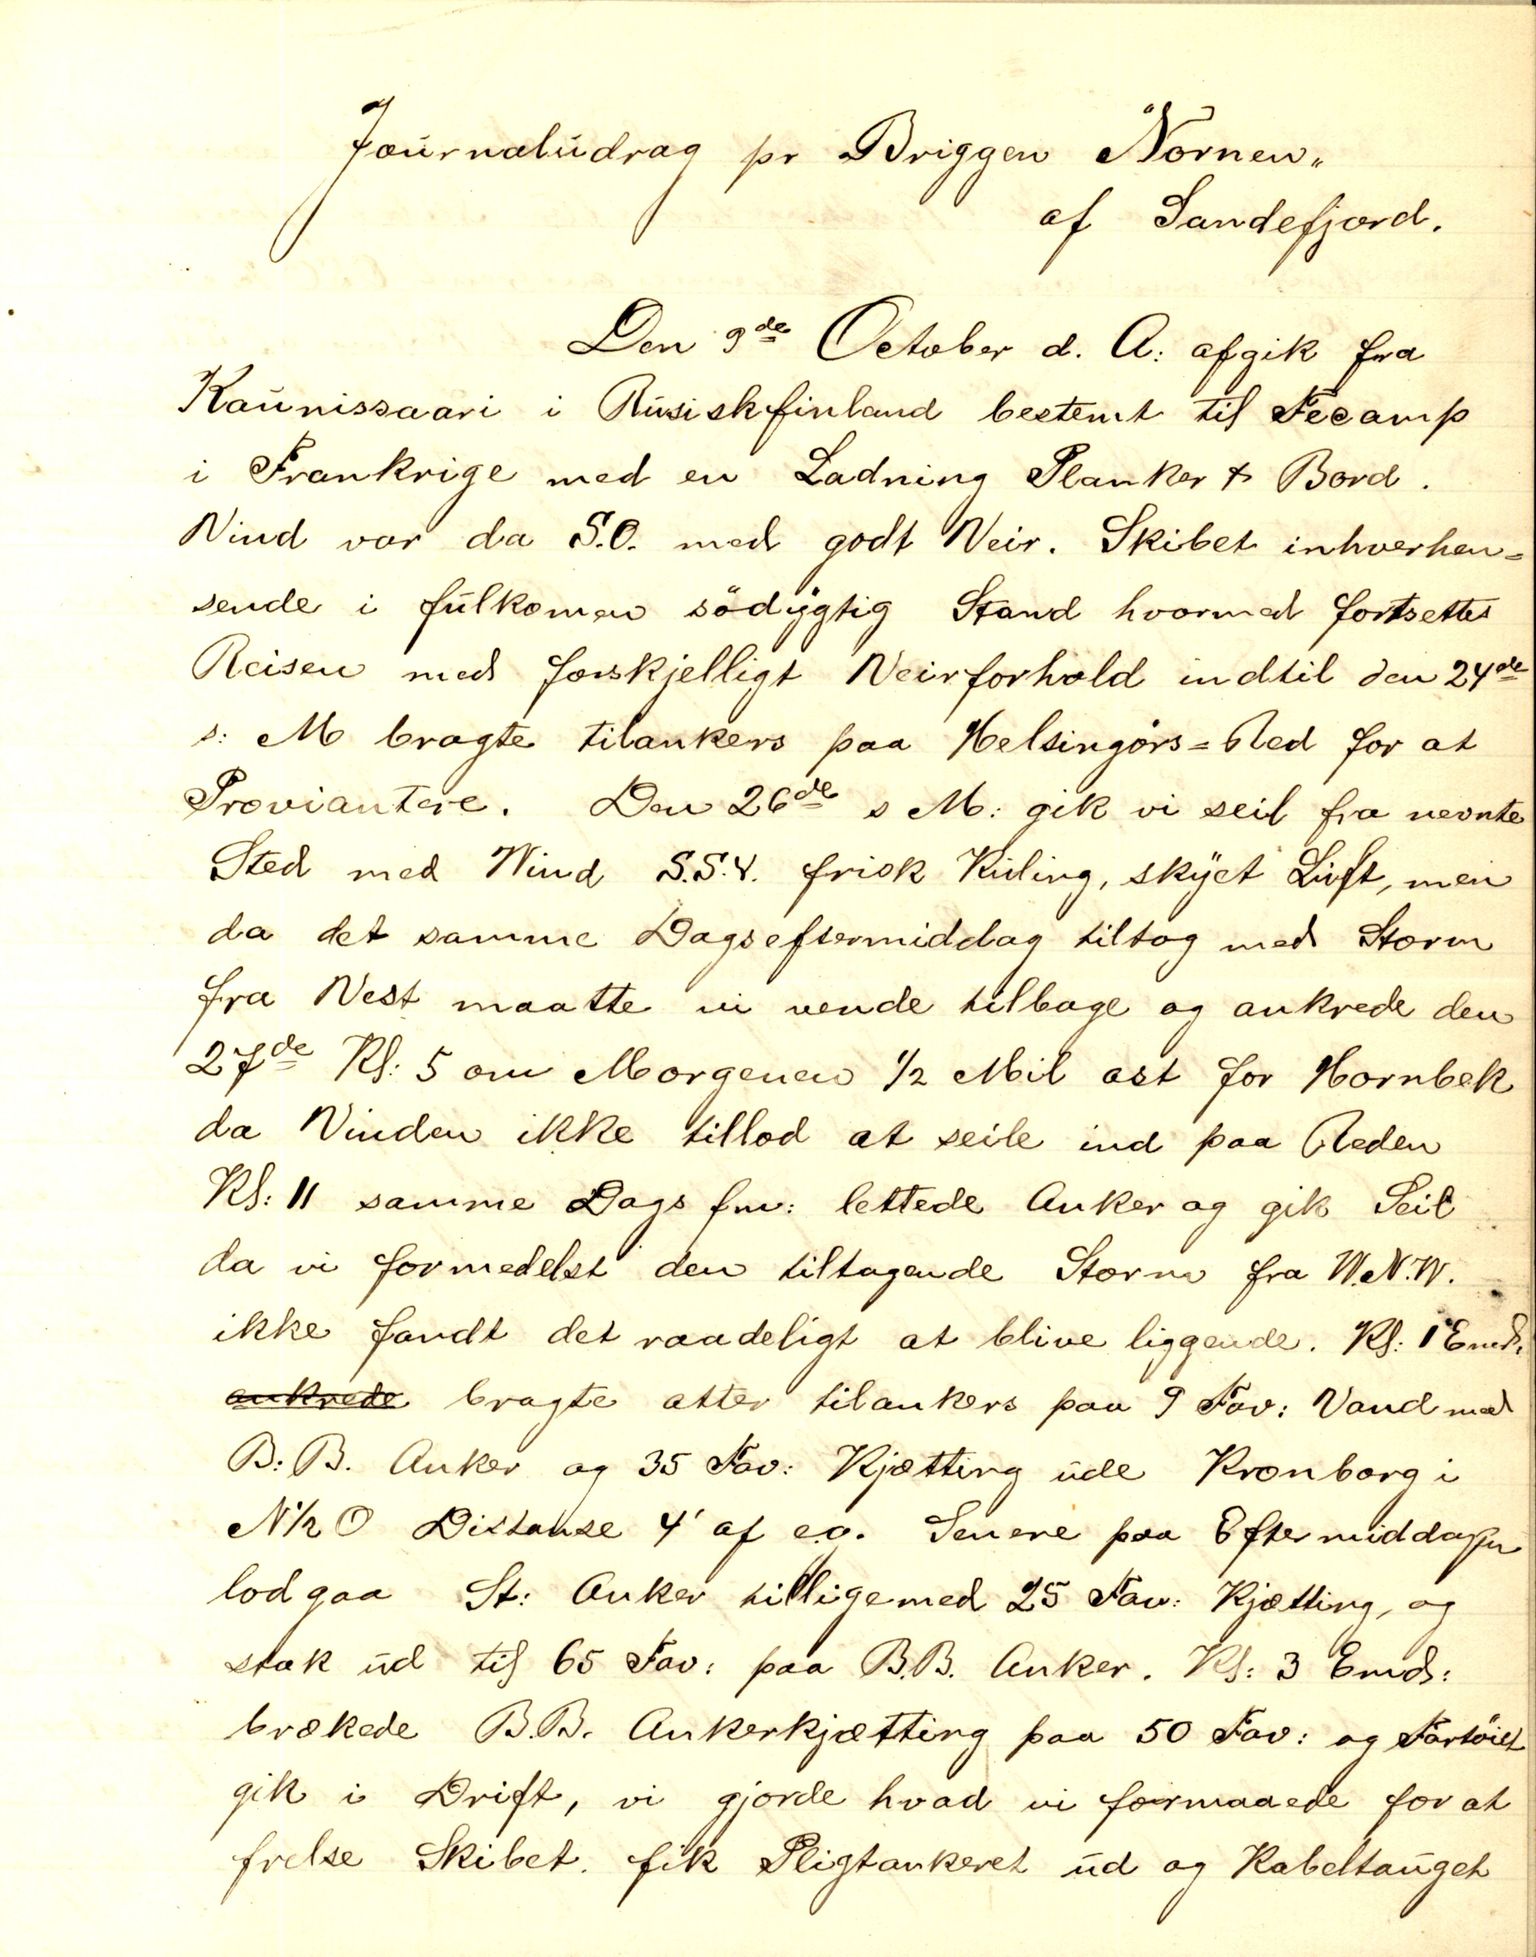 Journaludrag pr Briggen Nornen„
af Sandefjord.
Den 9de October d. A: afgik fra
Kaunissaari i Rusiskfinland bestemt til Fecamp
i Frankrige med en Ladning Planker & Bord.
Vind var da S.O. med godt Veir. Skibet inhverhen=
sende i fulkomen södygtig Stand hvormed fortsettes
Reisen med forskjelligt Veirforhold indtil den 24de
s: M bragte tilankers paa Helsingörs=Red for at
Proviantere. Den 26de s M: gik vi seil fra nevnte
Sted med Wind S.S.V. frisk Kuling, skyet Luft, men
da det samme Dagseftermiddag tiltog med Storm
fra Vest maatte vi vende tilbage og ankrede den
27de Kl: 5 om Morgenen 1/2 Mil ost for Hornbek
da Vinden ikke tillod at seile ind paa Reden
Kl: 11 samme Dags fm: lettede Anker og gik Seil
da vi formedelst den tiltagende Storm fra W.N.W.
ikke fandt det raadeligt at blive liggende. Kl: 1 Emd:
ankrede bragte atter tilankers paa 9 Fav: Vand med
B:B. Anker og 35 Fav: Kjætting ude Kronborg i
N1/2O Distanse 4' af e.o. Senere paa Eftermiddagen
lod gaa St: Anker tilligemed 25 Fav: Kjætting, og
stak ud til 65 Fav: paa B.B. Anker. Kl: 3 Emd:
brækede B.B. Ankerkjætting paa 50 Fav: og Fartöiet
gik i Drift, vi gjorde hvad vi formaaede for at
frelse Skibet. fik Pligtankeret ud og Kabeltauget